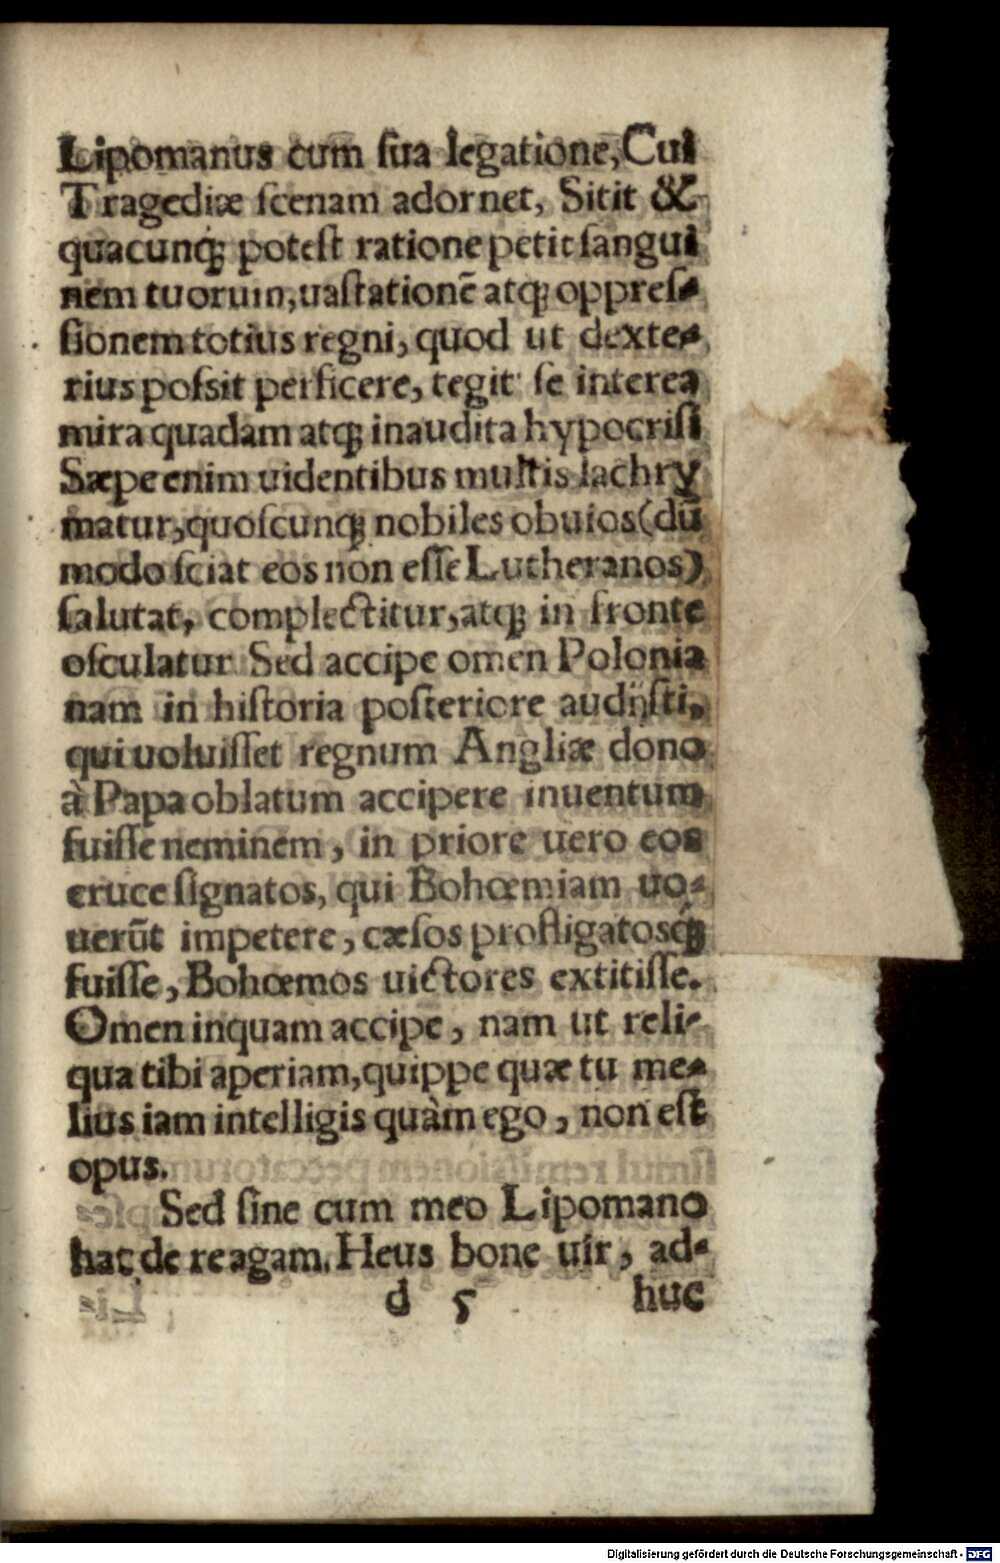 Lipomanus cum sua legatione, Cui
Tragediæ scenam adornet, Sitit &
quacunq; potest ratione petit sangui
nem tuorum, uastationē atq; oppres-
sionem totius regni, quod ut dexte-
rius possit perficere, tegit se interea
mira quadam atq; inaudita hypocrisi
Sæpe enim uidentibus multis lachry
matur, quoscunq; nobiles obuios (dū
modo sciat eos non esse Lutheranos)
salutat, complectitur, atq; in fronte
osculatur Sed accipe omen Polonia
nam in historia posteriore audijsti,
qui uoluisset regnum Angliæ dono
à Papa oblatum accipere inuentum
fuisse neminem, in priore uero eos
cruce signatos, qui Bohœmiam uo-
uerūt impetere, cæsos profligatosq́;
fuisse, Bohœmos uictores extitisse.
Omen inquam accipe, nam ut reli-
qua tibi aperiam, quippe quæ tu me-
lius iam intelligis quàm ego, non est
opus.
Sed sine cum meo Lipomano
hac de re agam. Heus bone uir, ad-
d 5 huc
Digitalisierung gefördert durch die Deutsche Forschungsgemeinschaft - DFG